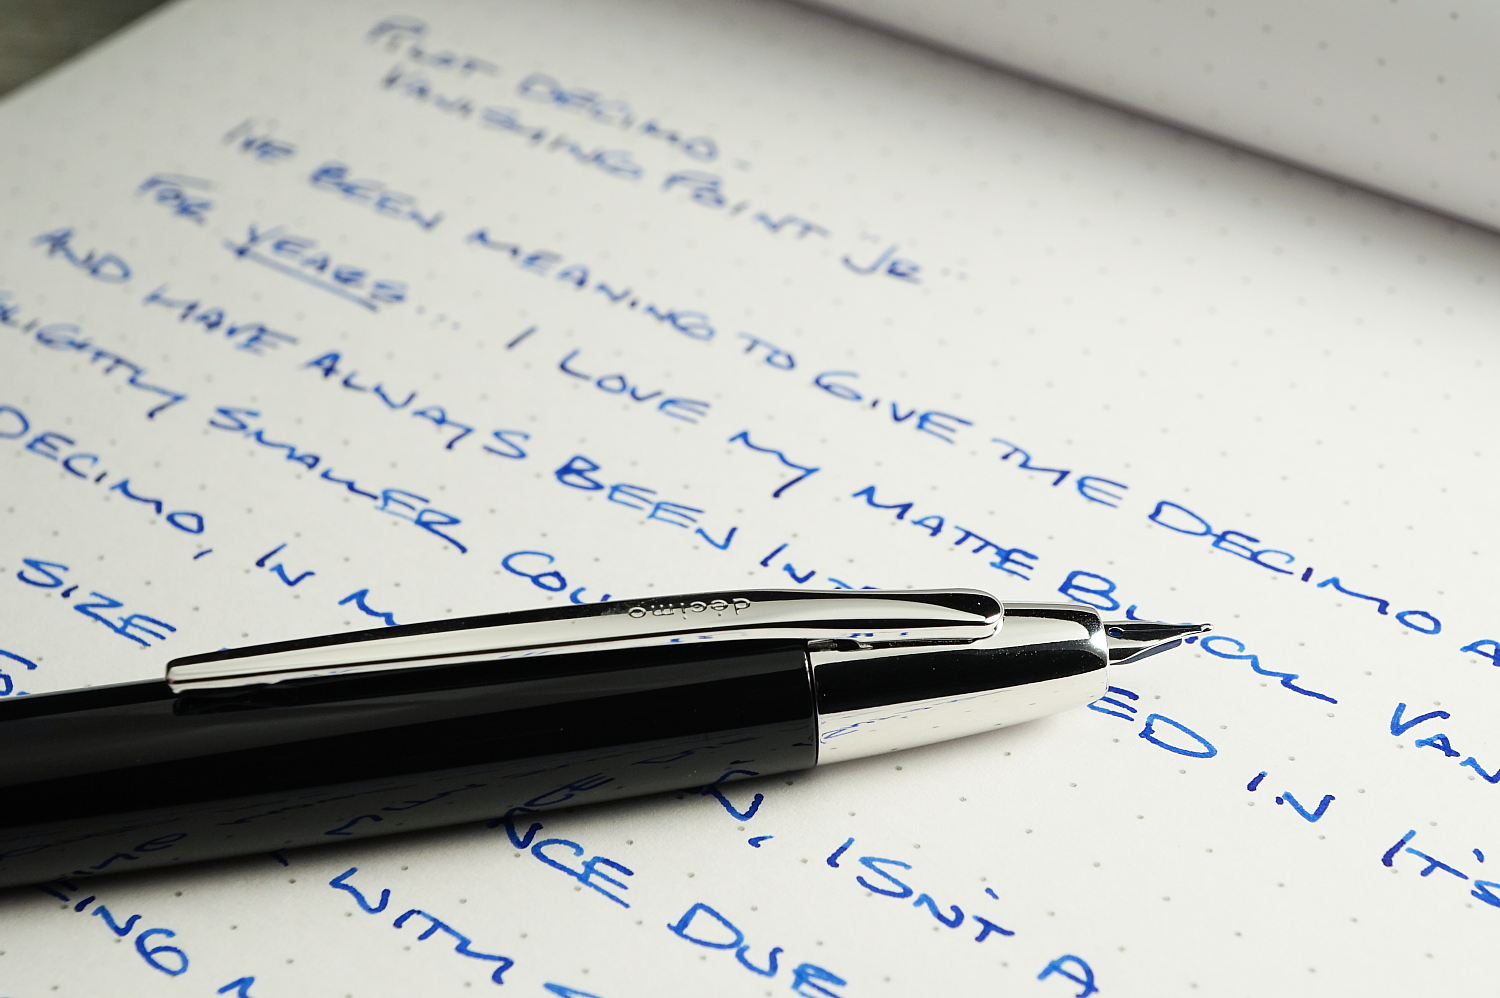 PILOT DECIMO -
VANISHING POINT JR...
I'VE BEEN MEANING TO GIVE THE DECIMO A
FOR YEARS... I LOVE MY MATTE BLACK VAN
AND HAVE ALWAYS BEEN INTE ED IN IT'S
SLIGHTLY SMALLER COU
DECIMO, IN M N, ISN'T A
SIZE NCE DUE
FO WITH
EING
decimo